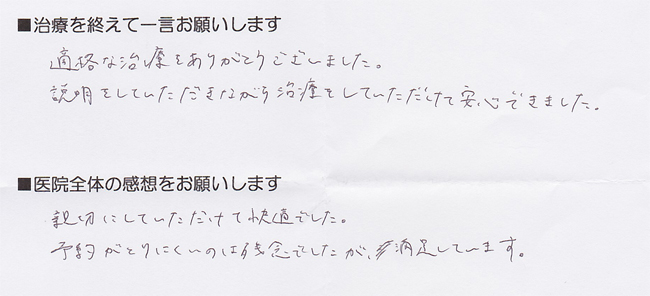 ■治療を終えて一言お願いします
適格な治療をありがとうございました。
説明をしていただきながら治療をしていただけて安心できました。
■医院全体の感想をお願いします
親切にしていただけて快適でした。
予約がとりにくいのは残念でしたが、満足しています。